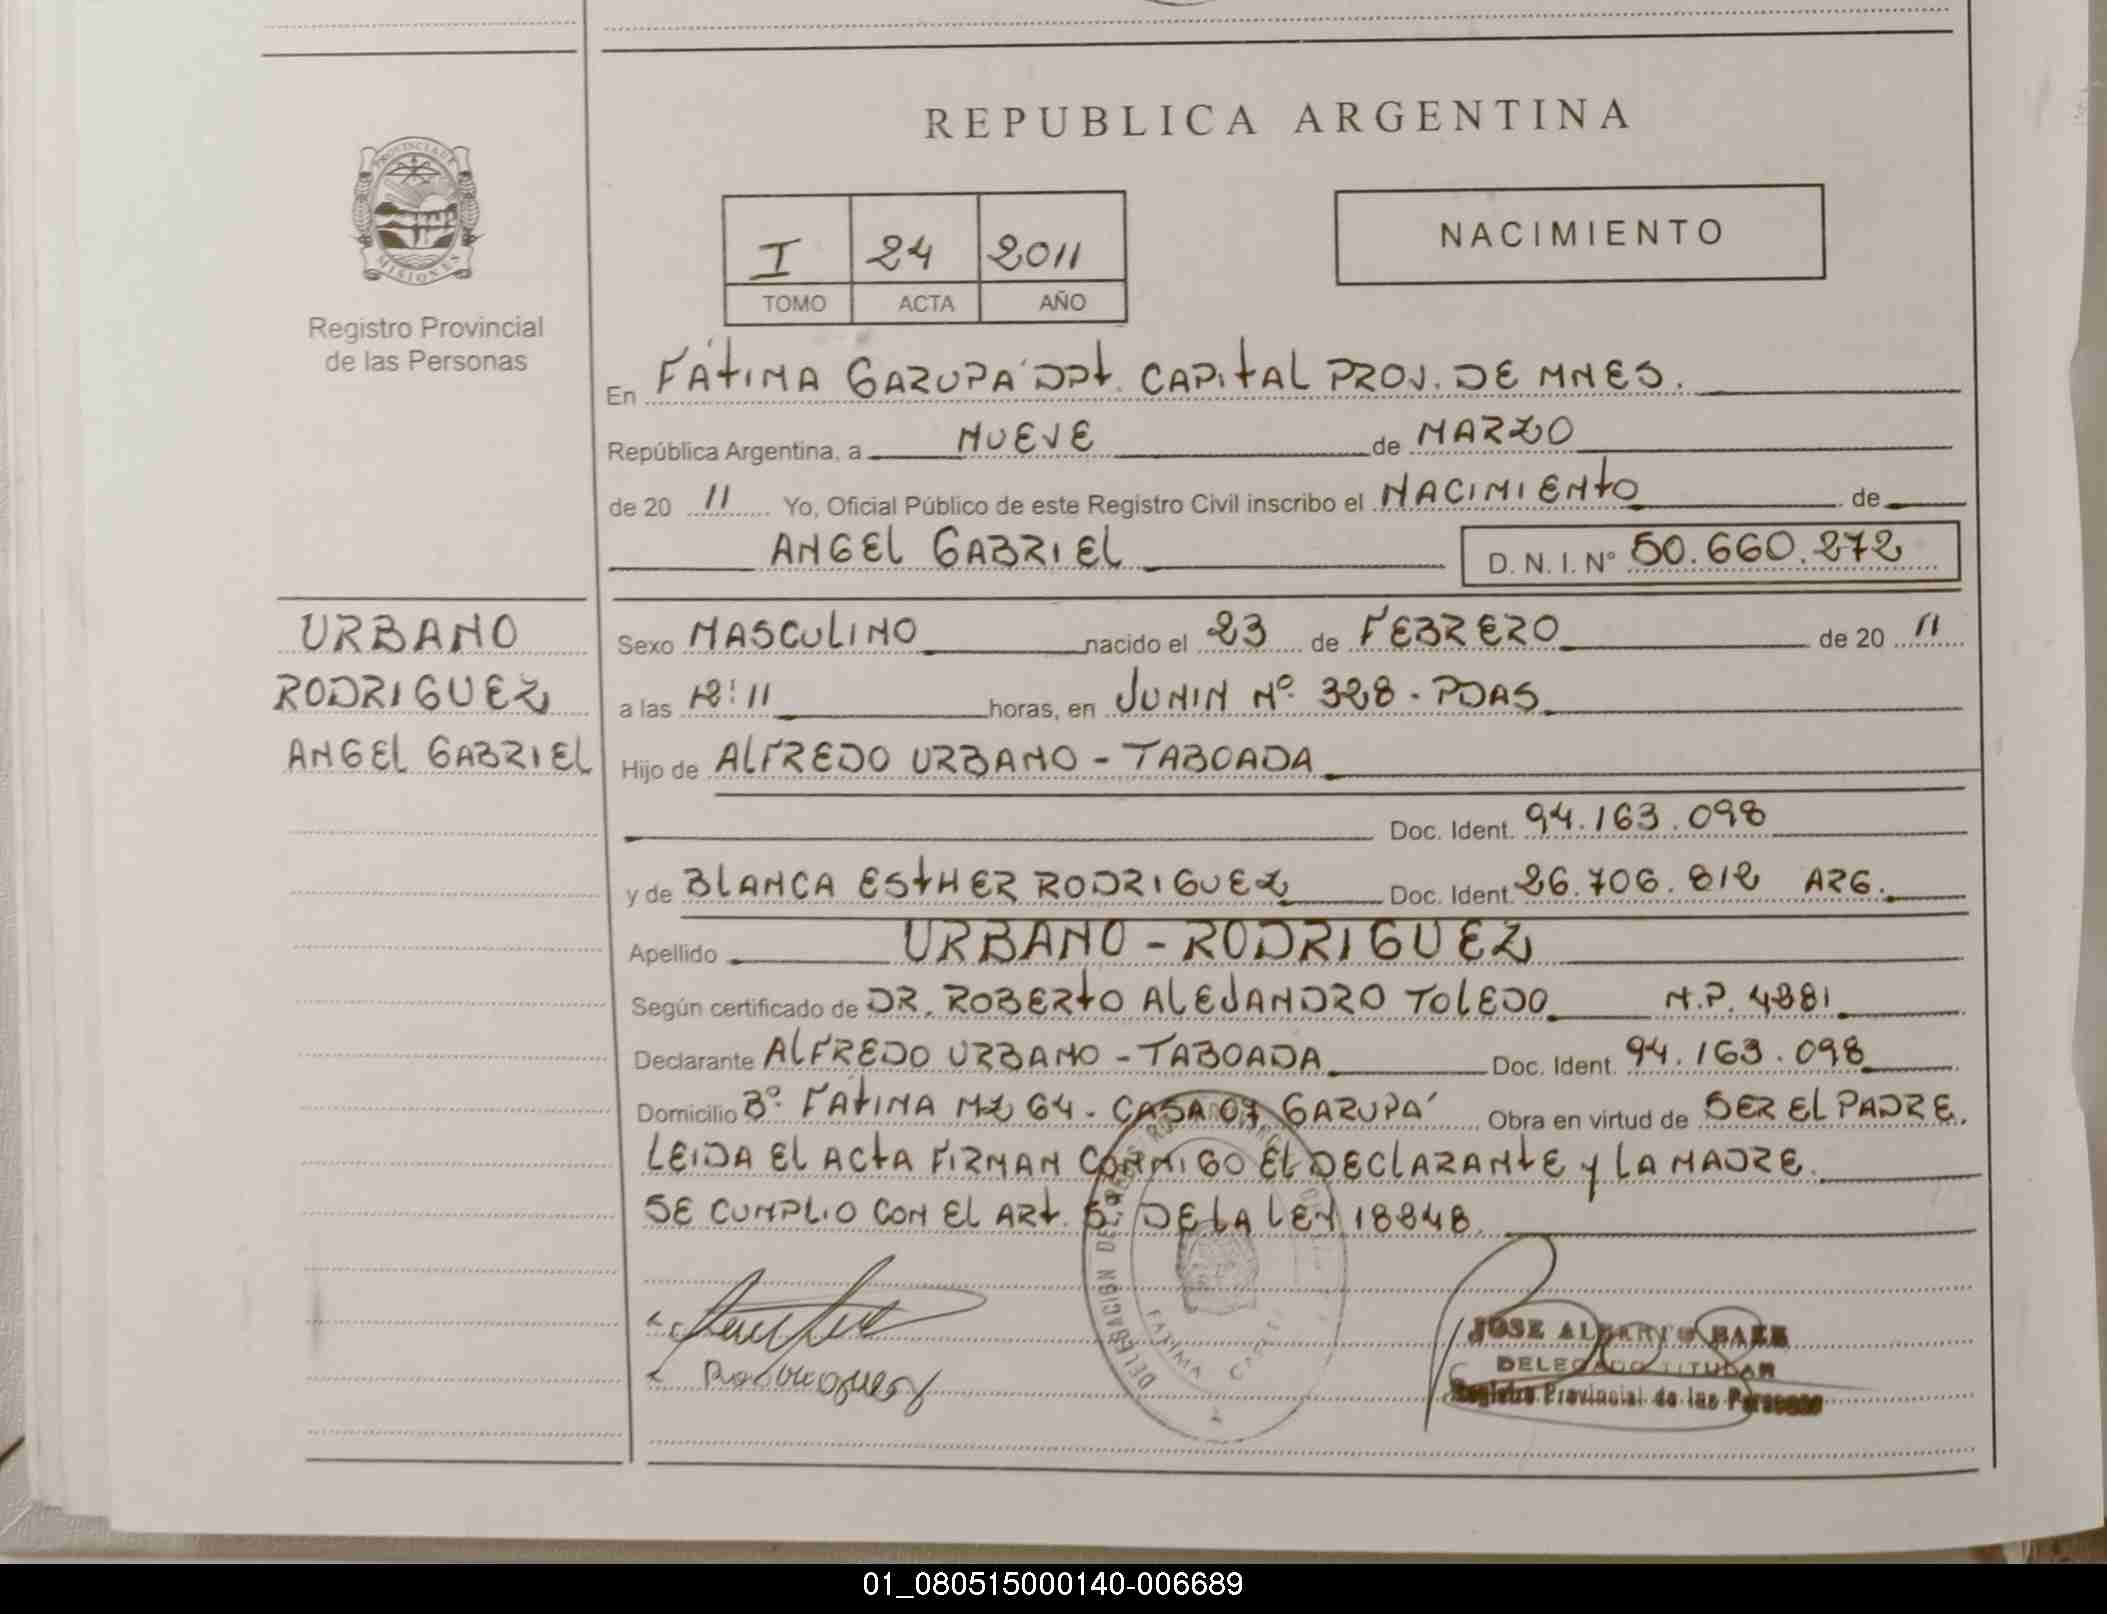 REPUBLICA ARGENTINA
PROVINCIA DE
MISIONES
Registro Provincial
de las Personas
I 24 2011
TOMO ACTA AÑO
NACIMIENTO
En FÁTIMA GARUPÁ DPt. CAPITAL PROV. DE MNES.
República Argentina, a NUEVE de MARZO
de 20 11 Yo, Oficial Público de este Registro Civil inscribo el NACIMIENTO de
ANGEL GABRIEL D. N. I. Nº 50.660.272
URBANO
RODRIGUEZ
ANGEL GABRIEL
Sexo MASCULINO nacido el 23 de FEBRERO de 20 11
a las 12:11 horas, en JUNIN Nº 328 - PDAS
Hijo de ALFREDO URBANO - TABOADA
Doc. Ident. 94.163.098
y de BLANCA ESTHER RODRIGUEZ Doc. Ident. 26.706.812 ARG.
Apellido URBANO - RODRIGUEZ
Según certificado de DR. ROBERTO ALEJANDRO TOLEDO M.P. 4881
Declarante ALFREDO URBANO - TABOADA Doc. Ident. 94.163.098
Domicilio Bº FÁTIMA MZ 64 - CASA 07 GARUPÁ Obra en virtud de SER EL PADRE.
LEIDA EL ACTA FIRMAN CONMIGO EL DECLARANTE Y LA MADRE.
SE CUMPLIO CON EL ART. 5: DE LA LEY 18848.
Rodriguez
DELEGACION
FATIMA
JOSE ALBERTO BAEZ
DELEGADO TITULAR
Registro Provincial de las Personas
01_080515000140-006689